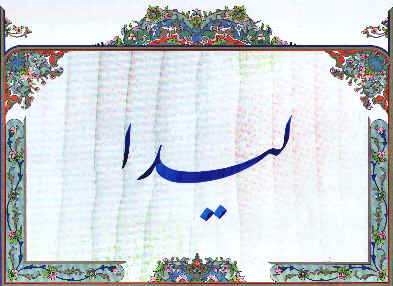 لیدا